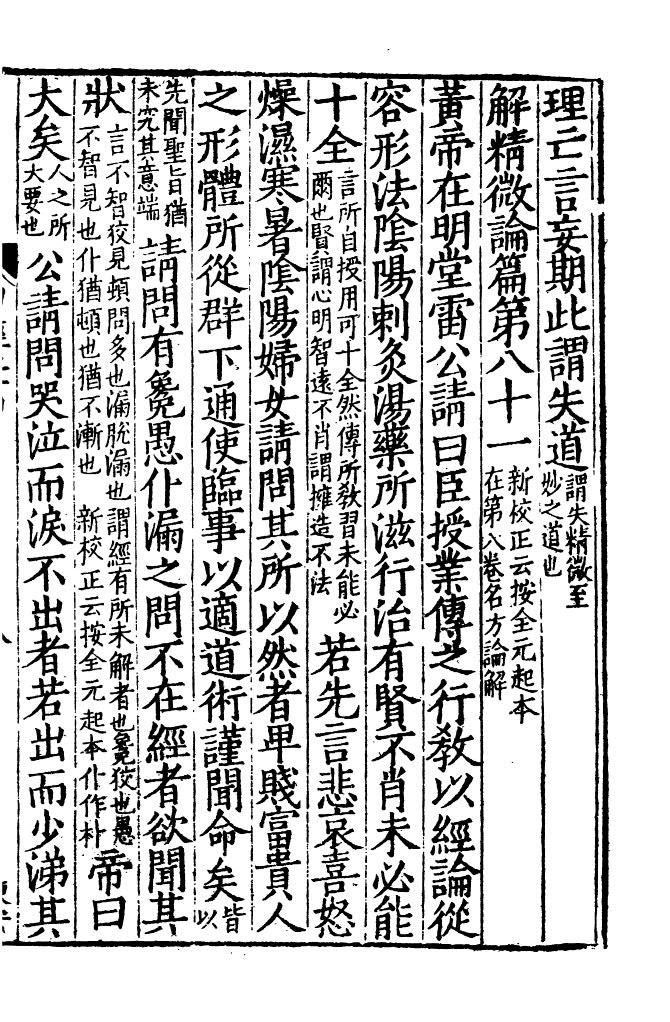 理亡言妄期此謂失道謂失精微至妙之道也
解精微論篇第八十一新校正云按全元起本在第八卷名方論解
黃帝在明堂雷公請曰臣授業傳之行敎以經論從
容形法陰陽刺灸湯藥所滋行治有賢不肖未必能
十全言所自授用可十全然傳所敎習未能必爾也賢謂心明智遠不肖謂擁造不法若先言悲哀喜怒
燥濕寒暑陰陽婦女請問其所以然者卑賤富貴人
之形體所從群下通使臨事以適道術謹聞命矣皆以
先聞聖旨猶未究其意端請問有毚愚仆漏之問不在經者欲聞其
狀言不智狡見頓問多也漏脫漏也謂經有所未解者也毚狡也愚不智見也仆猶頓也猶不漸也新校正云按全元起本仆作朴帝曰
大矣人之所大要也公請問哭泣而淚不出者若出而少涕其